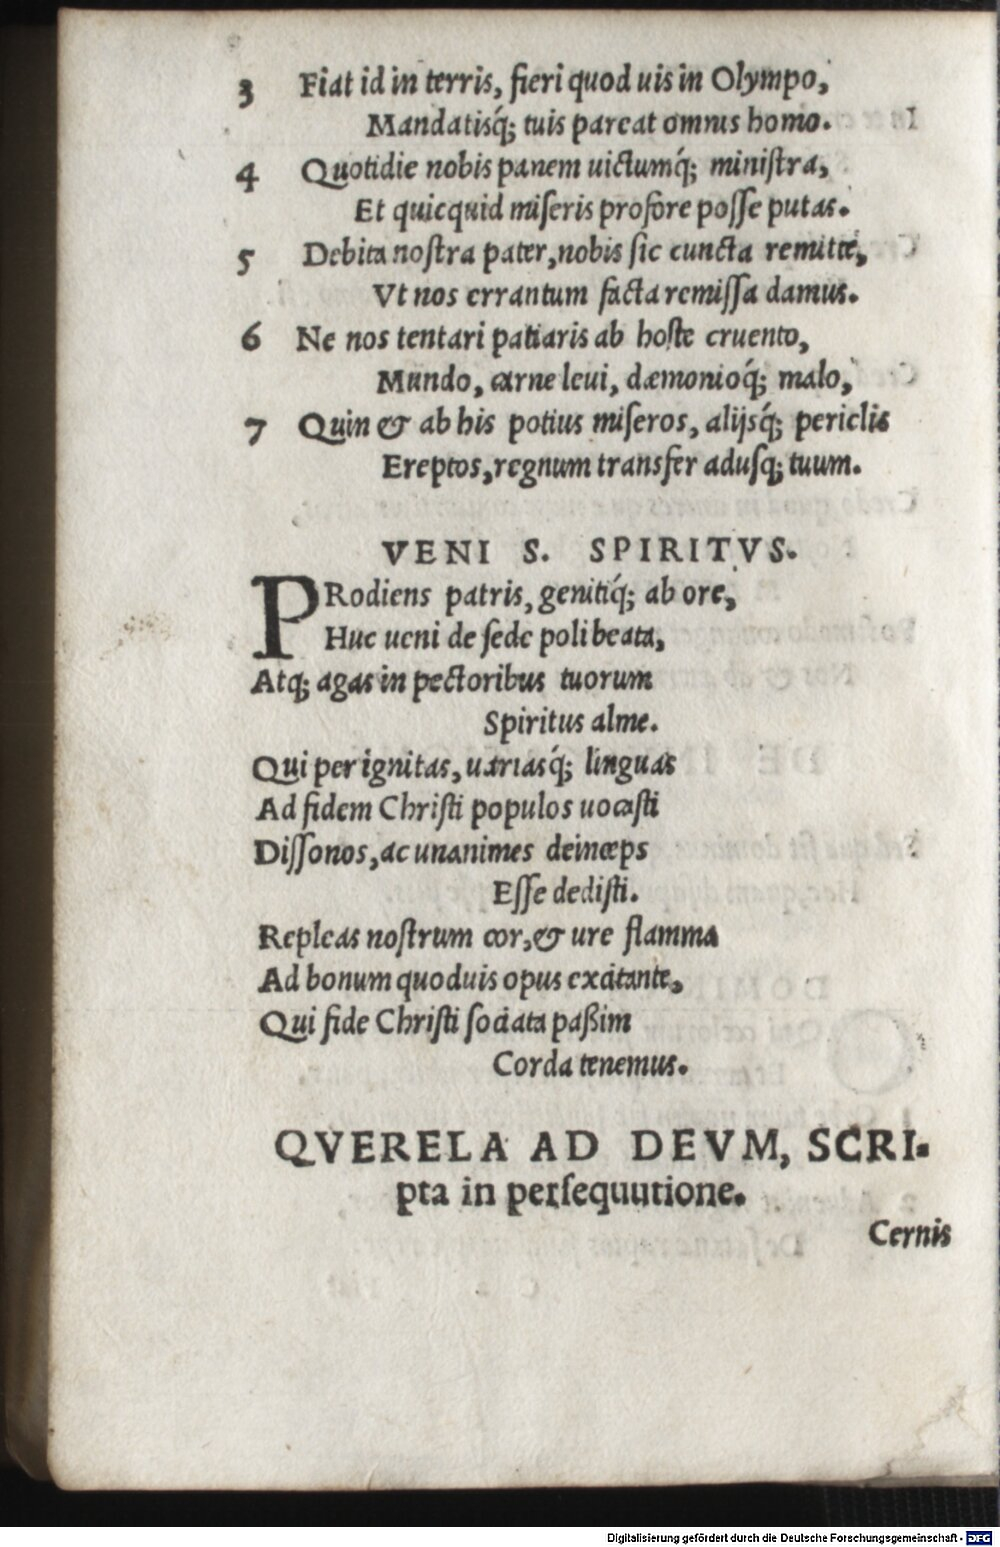 3 Fiat id in terris, fieri quod uis in Olympo,
Mandatisq́; tuis pareat omnis homo.
4 Quotidie nobis panem uictumq́; miniſtra,
Et quicquid miſeris profore poſſe putas.
5 Debita noſtra pater, nobis ſic cuncta remitte,
Vt nos errantum facta remiſſa damus.
6 Ne nos tentari patiaris ab hoſte cruento,
Mundo, carne leui, dæmonioq́; malo,
7 Quin & ab his potius miſeros, alijsq́; periclis
Ereptos, regnum transfer aduſq; tuum.
VENI S. SPIRITVS.
PRodiens patris, genitiq́; ab ore,
Huc ueni de ſede poli beata,
Atq; agas in pectoribus tuorum
Spiritus alme.
Qui per ignitas, uariasq́; linguas
Ad fidem Chriſti populos uocaſti
Diſſonos, ac unanimes deinceps
Eſſe dediſti.
Repleas noſtrum cor, & ure flamma
Ad bonum quoduis opus excitante,
Qui fide Chriſti ſociata paßim
Corda tenemus.
QVERELA AD DEVM, SCRI-
pta in perſequutione.
Cernis
Digitalisierung gefördert durch die Deutsche Forschungsgemeinschaft - DFG